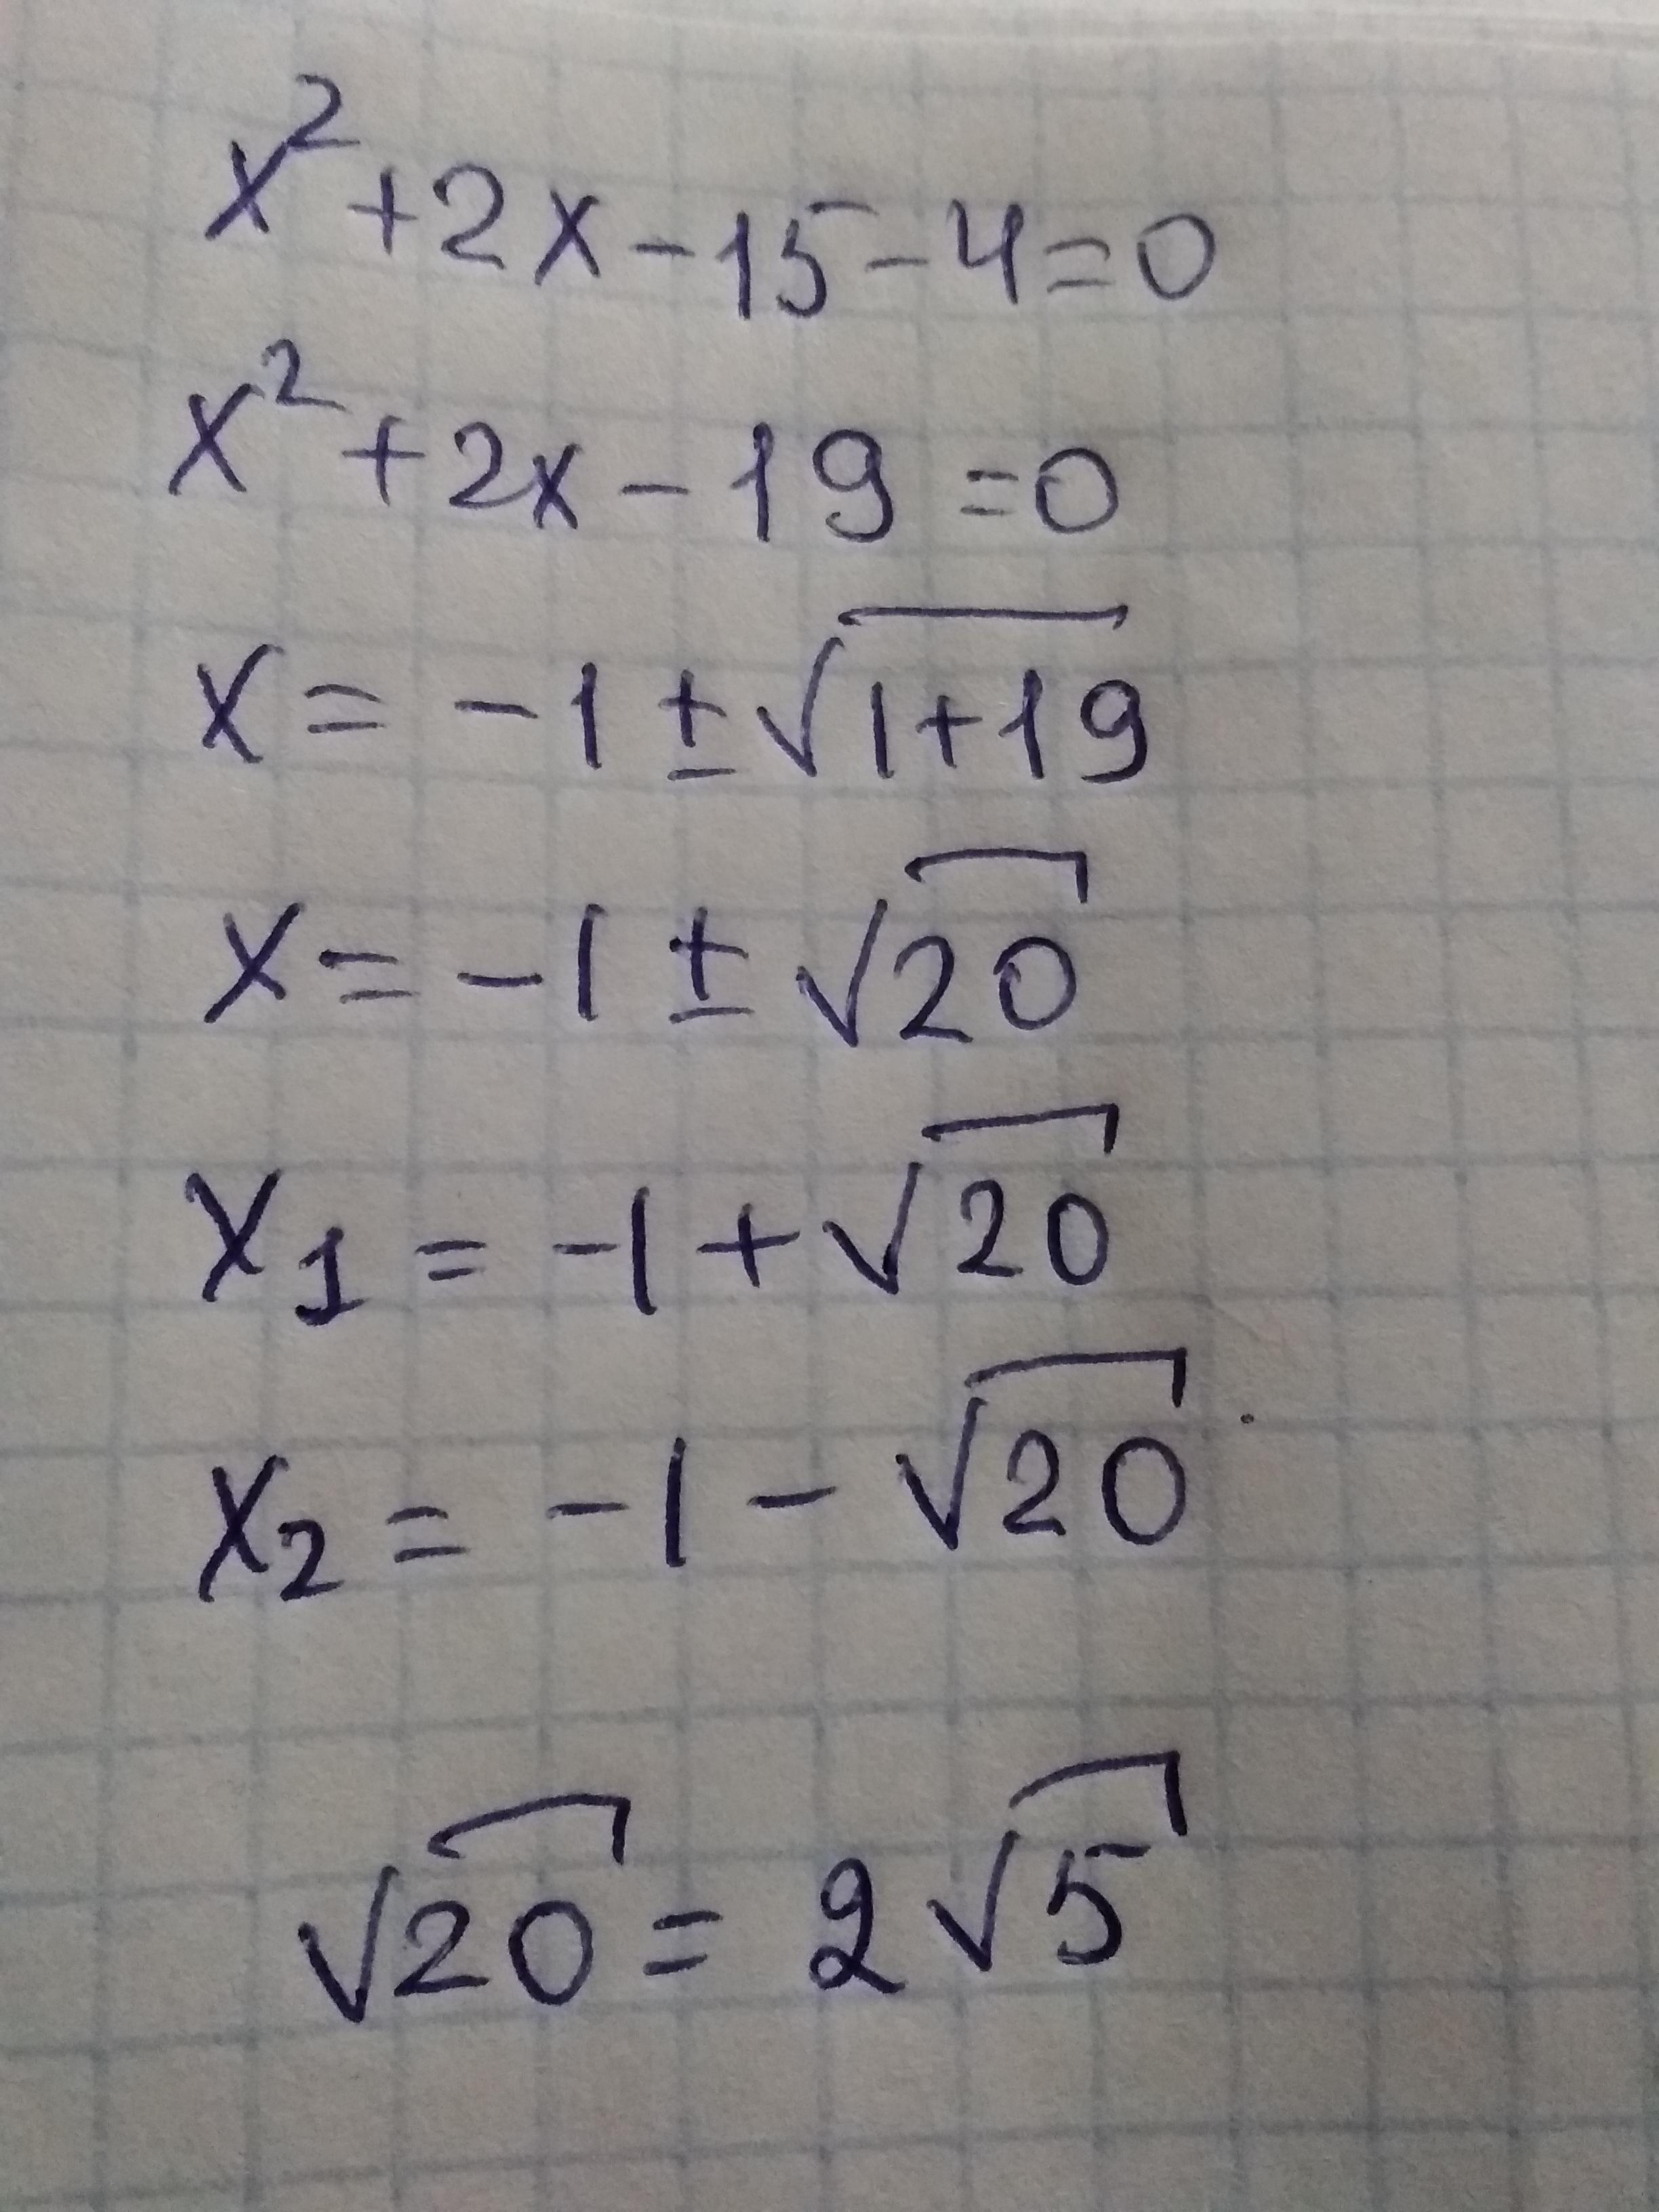 x² + 2x - 15 - 4 = 0
x² + 2x - 19 = 0
x = -1 ± √(1+19)
x = -1 ± √20
x₁ = -1 + √20
x₂ = -1 - √20
√20 = 2√5